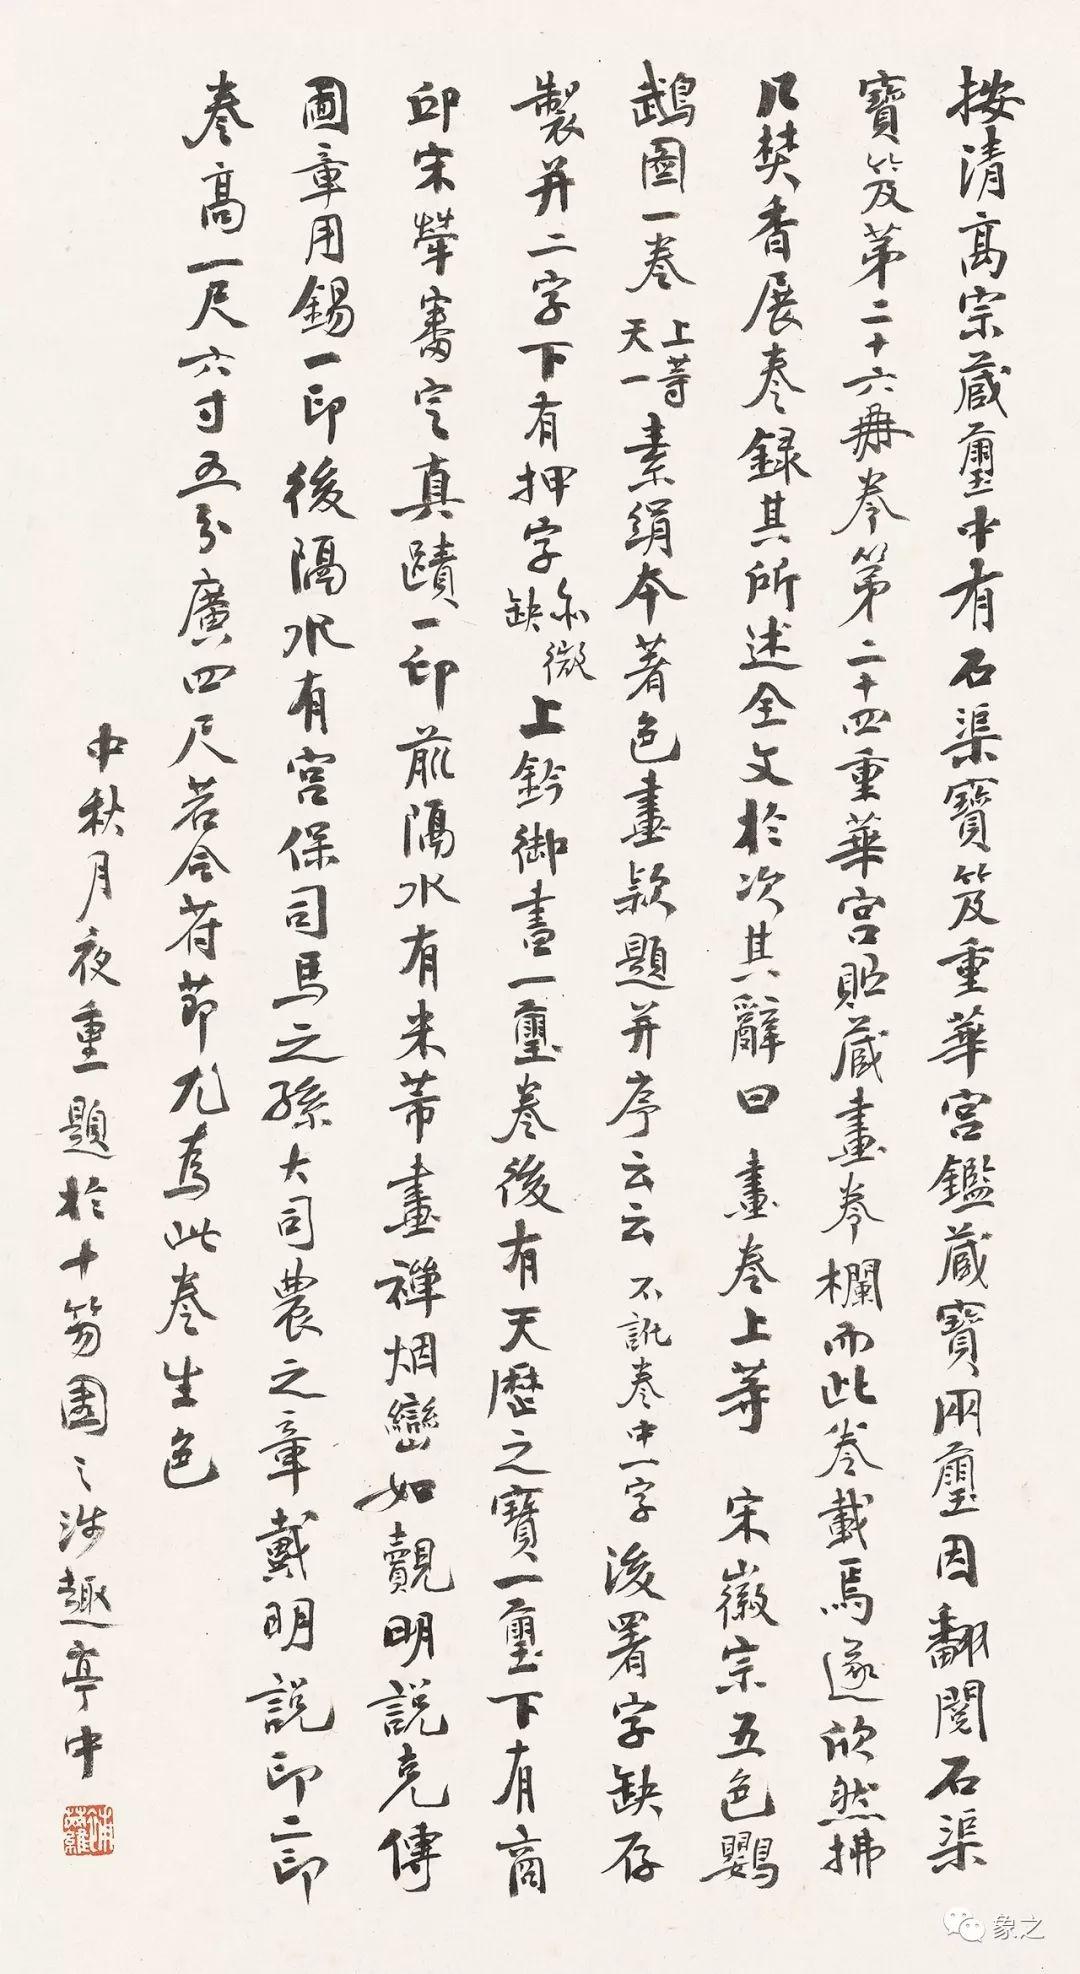 按清高宗藏璽中有石渠寶笈重華宮鑑藏寶兩璽因翻閱石渠
寶笈第二十六冊卷第二十四重華宮貯藏畫卷欄而此卷載焉遂欣然拂
几焚香展卷錄其所述全文於次其辭曰 畫卷上等 宋徽宗五色鸚
鵡圖一卷 上等天一 素絹本著色畫款題并序云云 不訛卷中一字 後署字缺存
製并二字下有押字 亦微缺 上鈐御書一璽卷後有天歷之寶一璽下有商
邱宋犖審定真蹟一印前隔水有米芾畫禪烟巒如覿明說克傳
圖章用錫一印後隔水有宮保司馬之孫大司農之章戴明說印二印
卷高一尺六寸五分廣四尺若合符節尤為此卷生色
中秋月夜重題於十笏園之涉趣亭中
象之